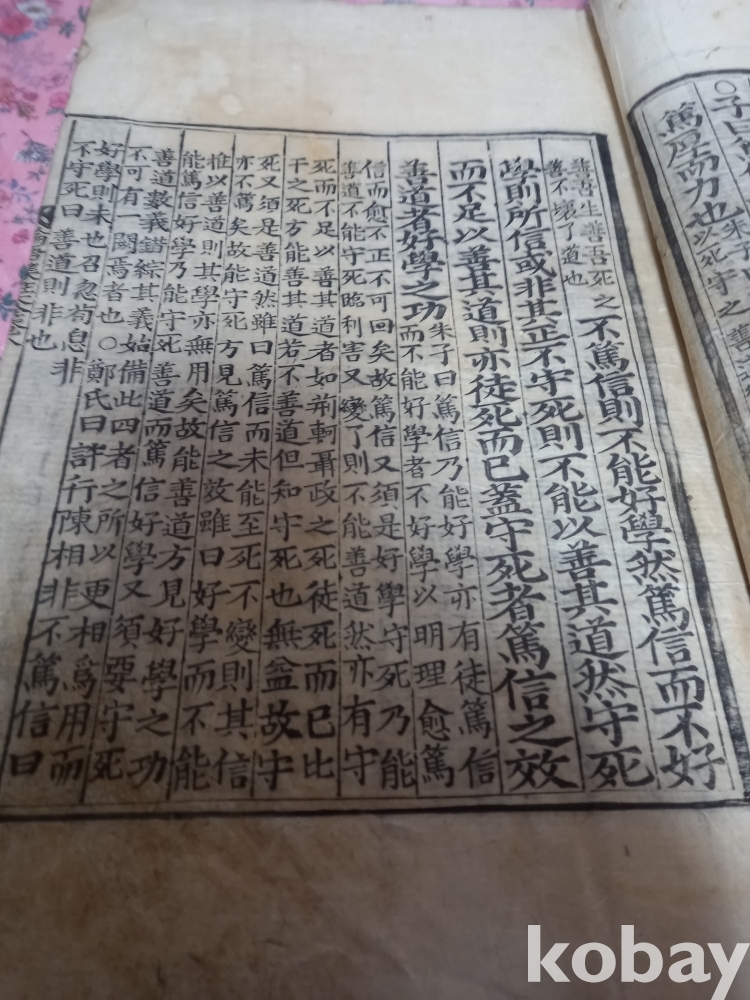 ○子曰篤
篤厚而力也
以死守之善道
善吾生善吾死之
善不壞了道也
不篤信則不能好學然篤信而不好
學則所信或非其正不守死則不能以善其道然守死
而不足以善其道則亦徒死而已蓋守死者篤信之效
善道者好學之功
朱子曰篤信乃能好學亦有徒篤信
而不能好學者不好學以明理愈篤
信而愈不正不可回矣故篤信又須是好學守死乃能
善道不能守死臨利害又變了則不能善道然亦有守
死而不足以善其道者如荊軻聶政之死徒死而已比
干之死方能善其道若不善道但知守死也無益故守
死又須是善道然雖曰篤信而未能至死不變則其信
亦不篤矣故能守死方見篤信之效雖曰好學而不能
推以善道則其學亦無用矣故能善道方見好學之功
能篤信好學乃能守死善道而篤信好學又須要守死
善道數義錯綜其義始備此四者之所以更相爲用而
不可有一闕焉者也○鄭氏曰許行陳相非不篤信曰
好學則未也召忽荀息非
不守死曰善道則非也
kobay